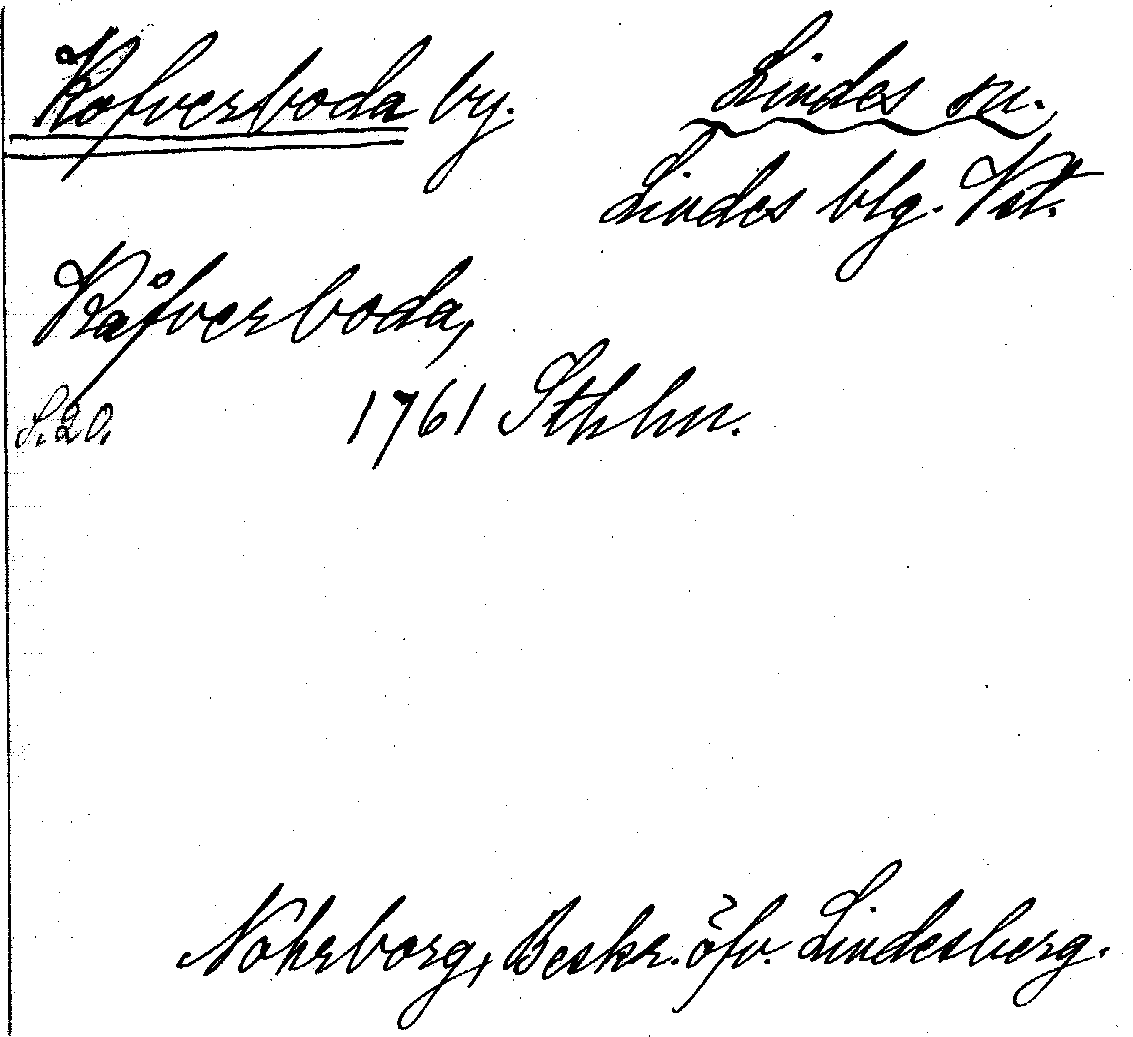 Råfverboda by. Lindes sn.
Lindes blg. Vst.
Råfverboda,
S.20. 1761 Sthlm.
Nohrborg, Beskr. öfv. Lindesberg.